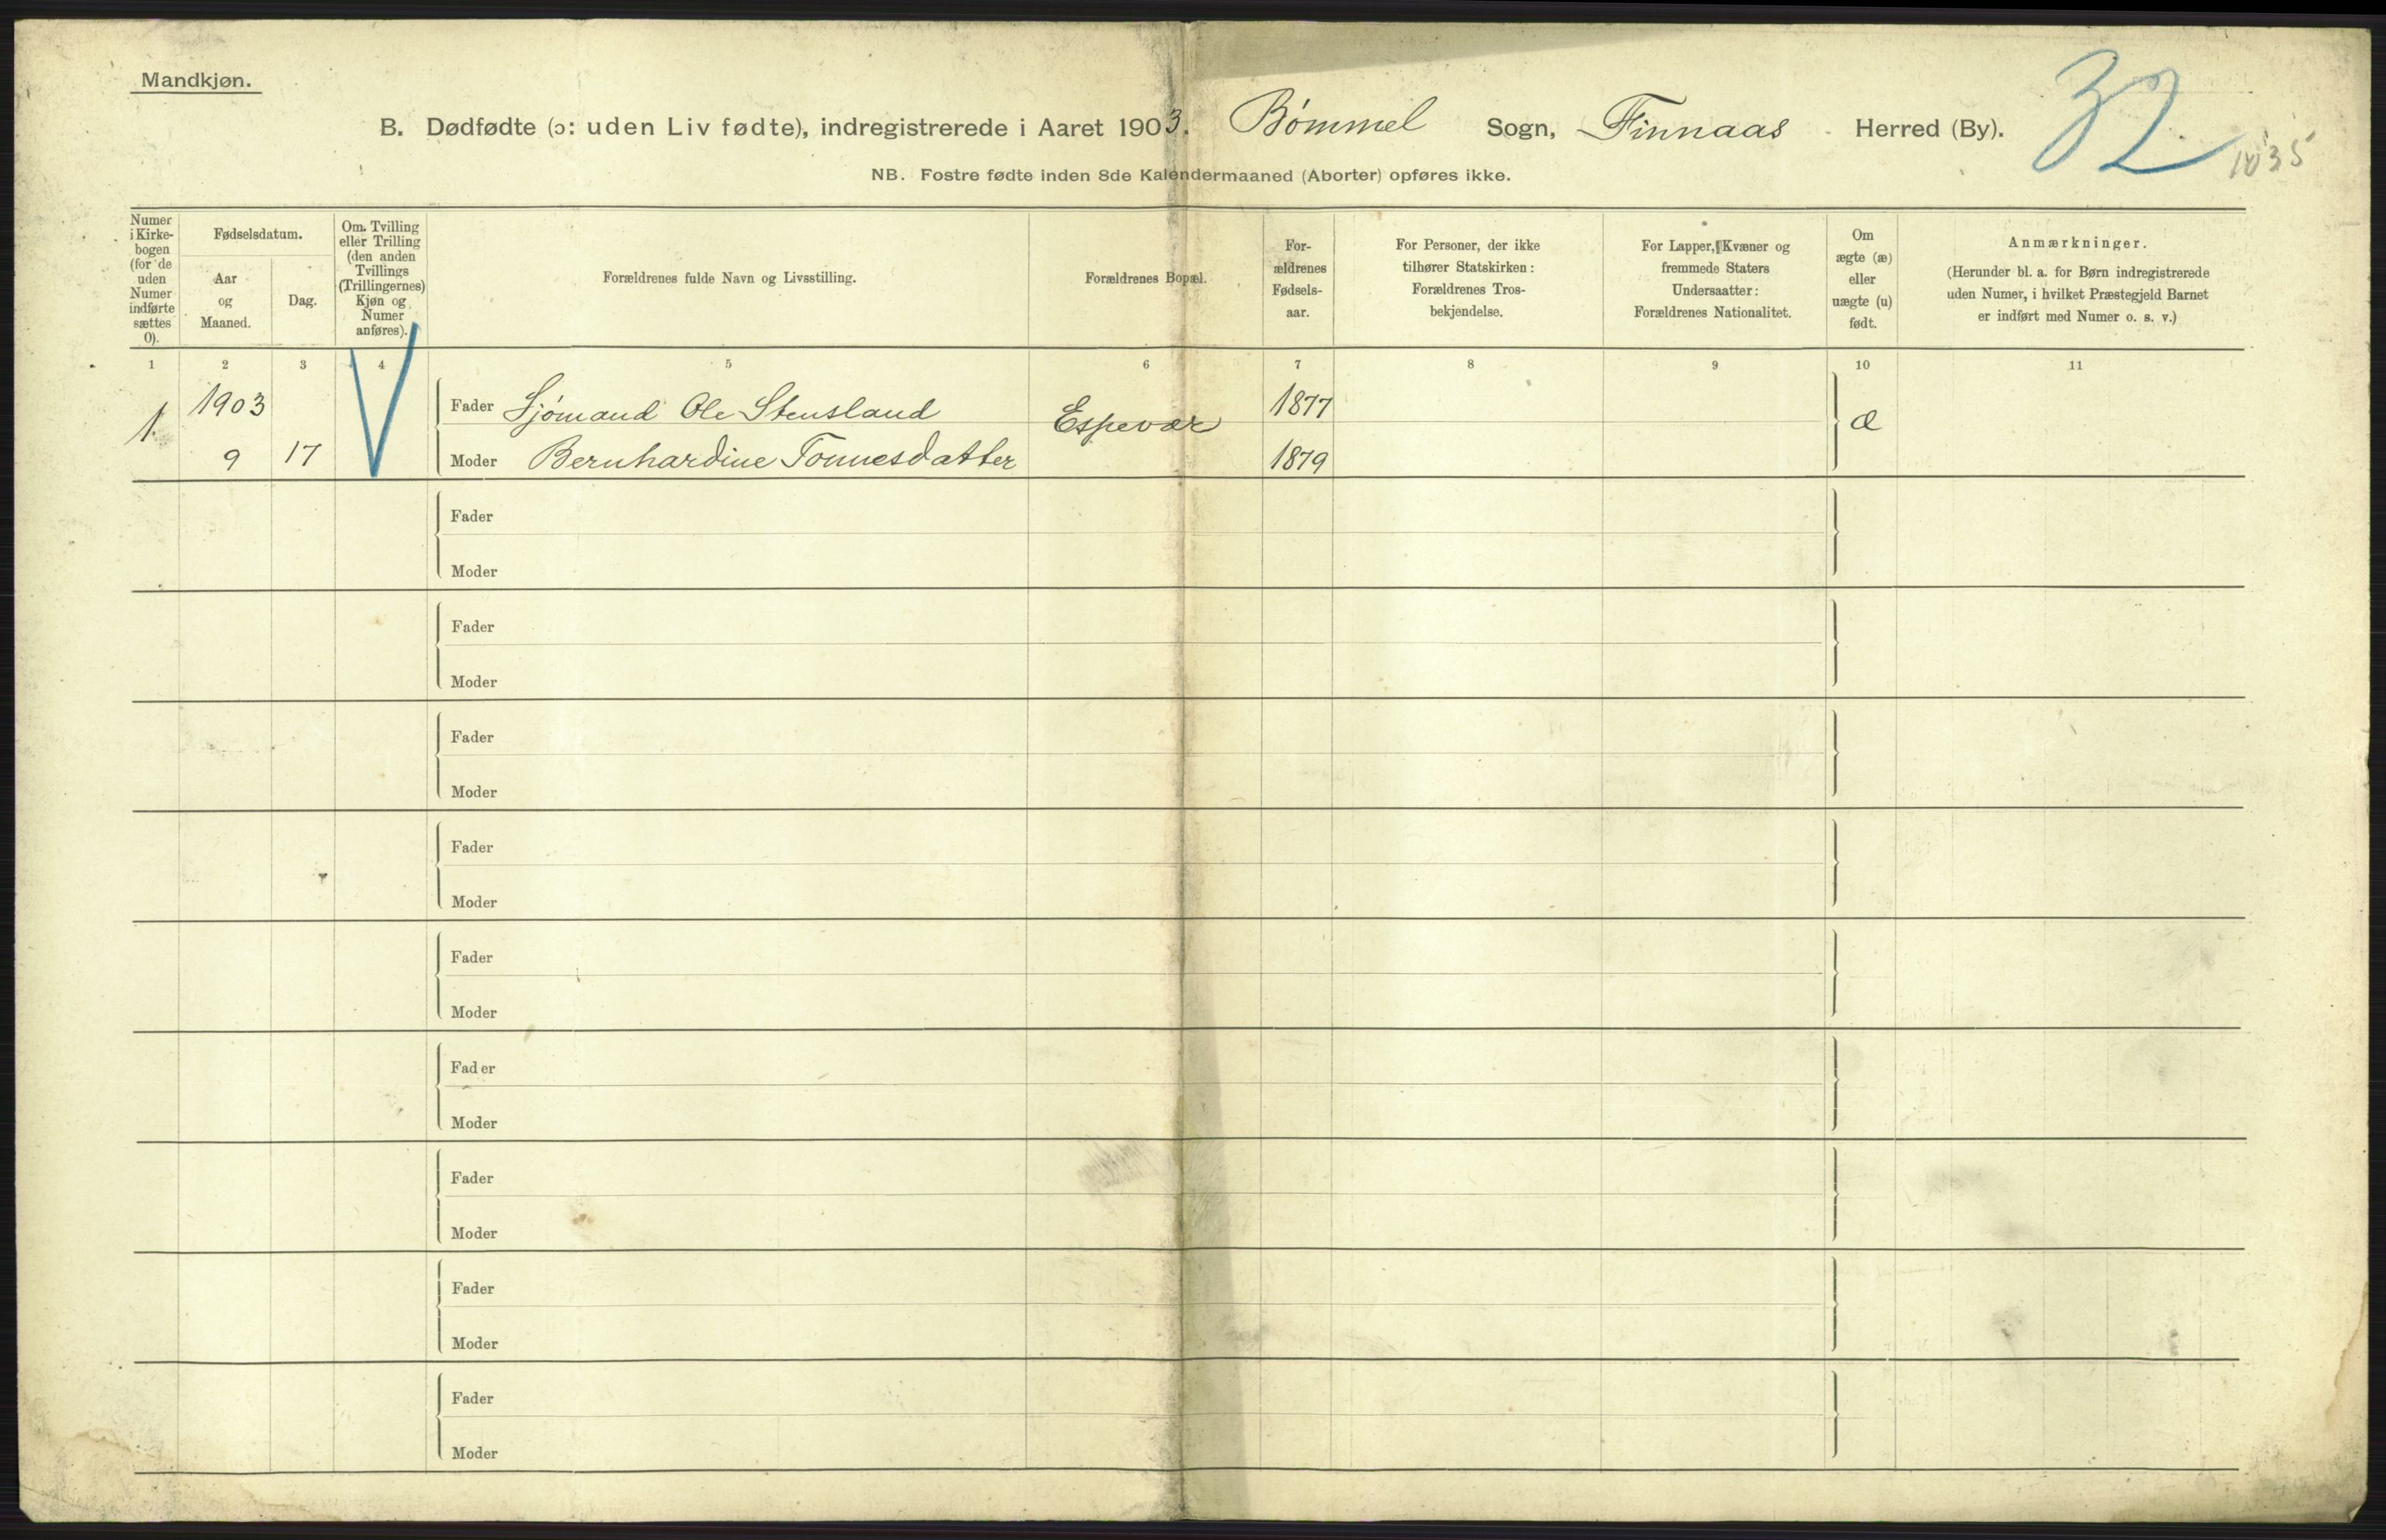 Mandkjøn.
B. Dødfødte (ɔ: uden Liv fødte), indregistrerede i Aaret 1903. Bømmel Sogn, Finnaas Herred (By).
32
1035
NB. Fostre fødte inden 8de Kalendermaaned (Aborter) opføres ikke.
Numer
i Kirke-
bogen
(for de
uden
Numer
indførte
sættes
0).
Fødselsdatum.
Aar
og
Maaned.
Dag.
Om. Tvilling
eller Trilling
(den anden
Tvillings
(Trillingernes)
Kjøn og
Numer
anføres).
Forældrenes fulde Navn og Livsstilling.
Forældrenes Bopæl.
For-
ældrenes
Fødsels-
aar.
For Personer, der ikke
tilhører Statskirken:
Forældrenes Tros-
bekjendelse.
For Lapper, Kvæner og
fremmede Staters
Undersaatter:
Forældrenes Nationalitet.
Om
ægte (æ)
eller
uægte (u)
født.
Anmærkninger.
(Herunder bl. a. for Børn indregistrerede
uden Numer, i hvilket Præstegjeld Barnet
er indført med Numer o. s. v.)
1 2 3 4 5 6 7 8 9 10 11
1. 1903 Fader Sjømand Ole Stensland Espevær 1877 æ
9 17 Moder Bernhardine Tonnesdatter 1879
Fader
Moder
Fader
Moder
Fader
Moder
Fader
Moder
Fader
Moder
Fader
Moder
Fader
Moder
Fader
Moder
Fader
Moder